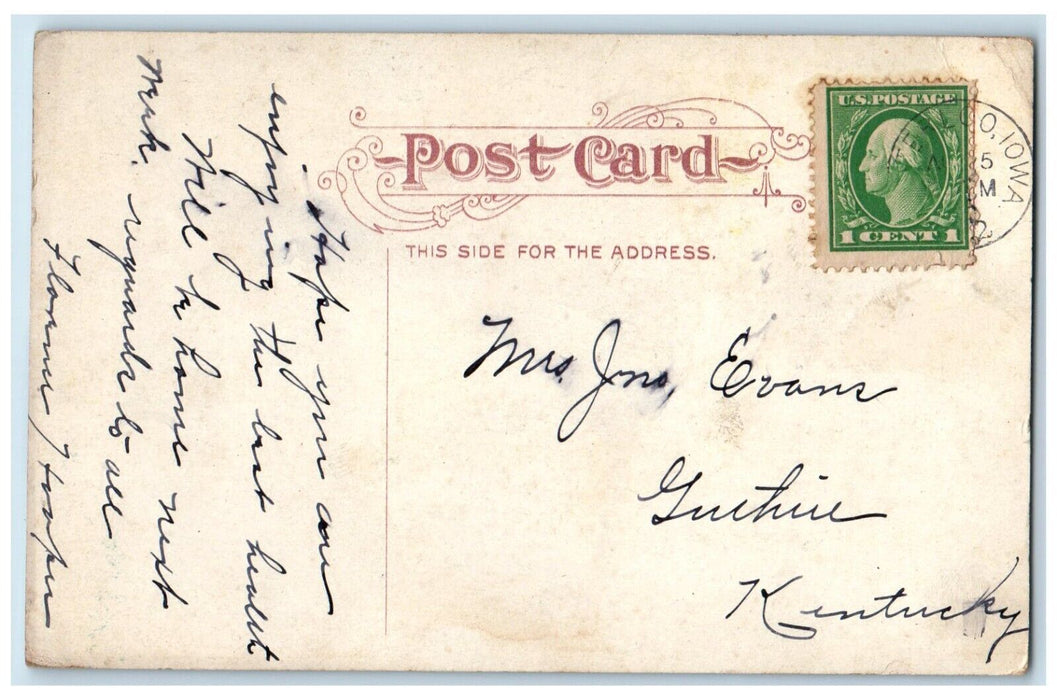 Post Card
THIS SIDE FOR THE ADDRESS.
U.S. POSTAGE
1 CENT 1
O, IOWA
5
M
2
Mrs. Jno, Evans
Guthrie
Kentucky
Hope you are
enjoying the best health
Will be home next
week. regards to all
Hooper